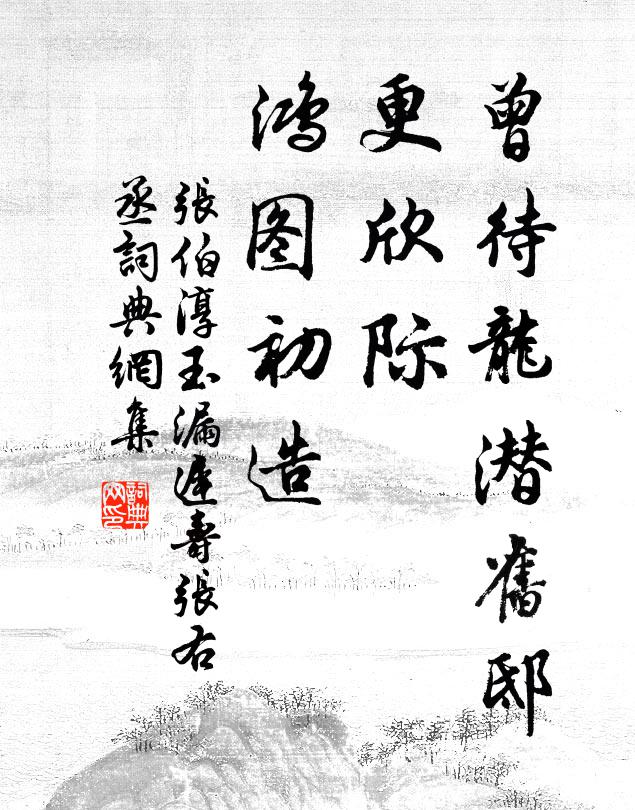 曾待龍潜舊邸
更欣际
鴻图初造
張伯淳玉漏遲壽張右
丞詞典網集
詞典
网印